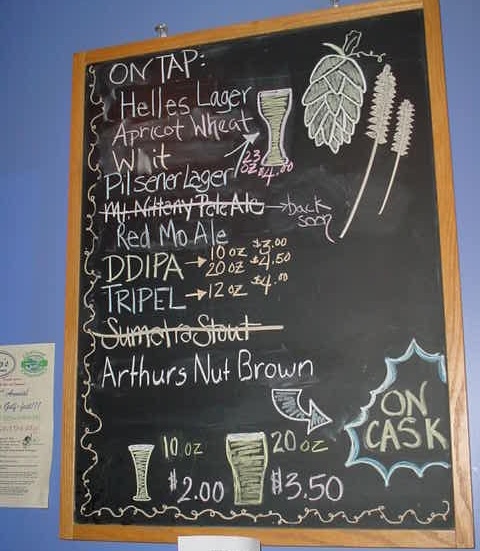 ON TAP:
Helles Lager
Apricot Wheat
Wit
23 oz $4.00
Pilsener Lager
Mt. Nittany Pale Ale → back soon
Red Mo Ale
DDIPA → 10 oz $3.00
20 oz $4.50
TRIPEL → 12 oz $4.00
Sumatra Stout
Arthurs Nut Brown
ON CASK
10 oz $2.00
20 oz $3.50